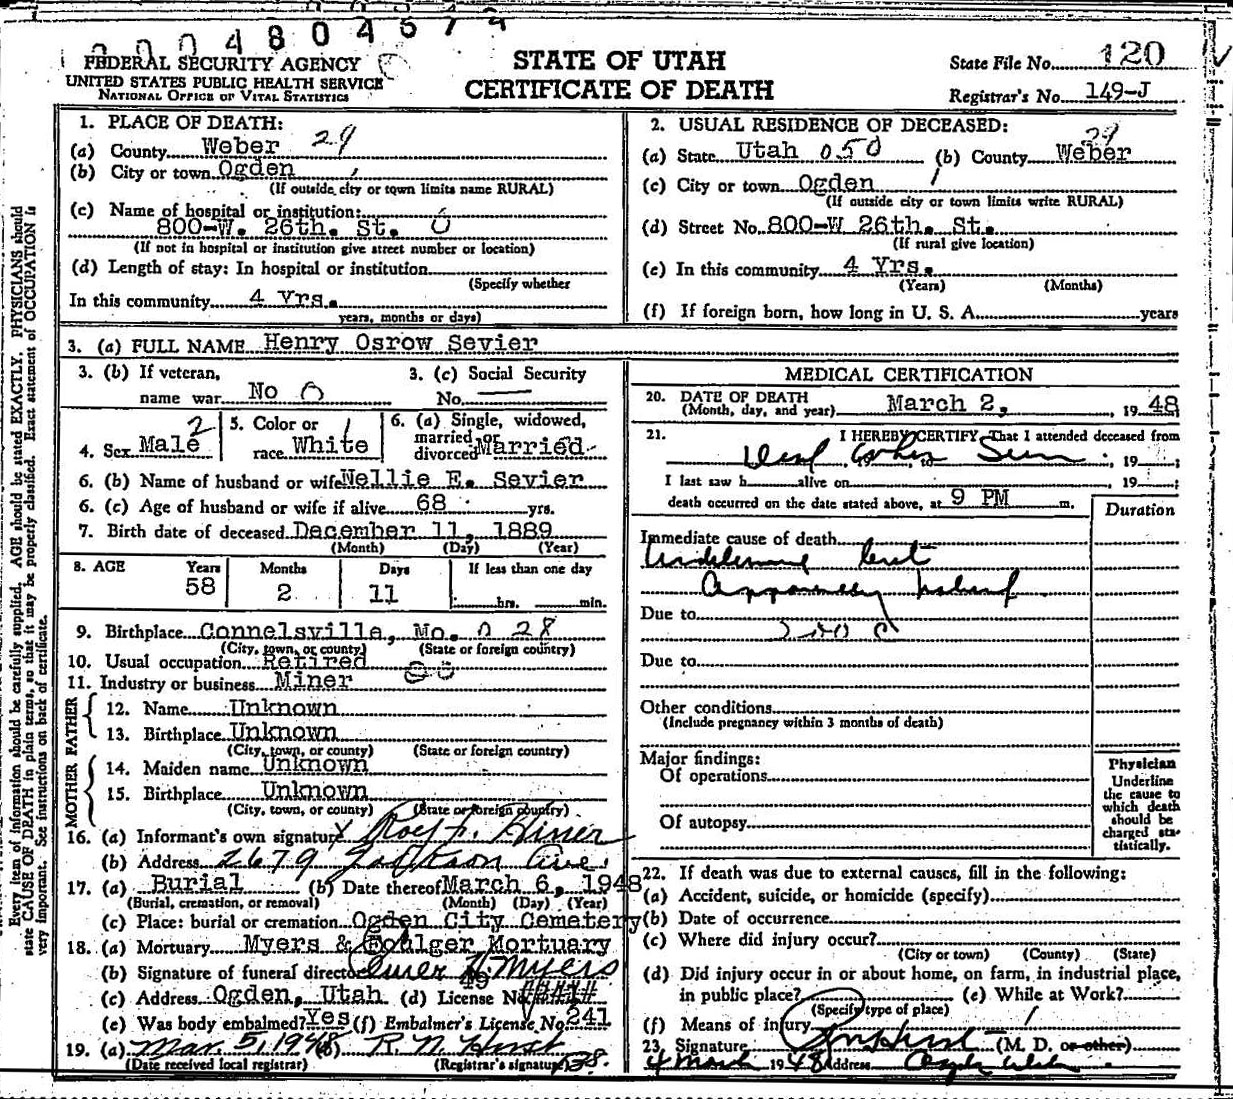 0004804379
FEDERAL SECURITY AGENCY
UNITED STATES PUBLIC HEALTH SERVICE
NATIONAL OFFICE OF VITAL STATISTICS
STATE OF UTAH
CERTIFICATE OF DEATH
State File No. 120
Registrar's No. 149-J
Every item of information should be carefully supplied. AGE should be stated EXACTLY. PHYSICIANS should
state CAUSE OF DEATH in plain terms, so that it may be properly classified. Exact statement of OCCUPATION is
very important. See instructions on back of certificate.
1. PLACE OF DEATH:
(a) County Weber 29
(b) City or town Ogden
(If outside city or town limits name RURAL)
(c) Name of hospital or institution:
800-W. 26th. St. 0
(If not in hospital or institution give street number or location)
(d) Length of stay: In hospital or institution
(Specify whether
In this community 4 Yrs.
years, months or days)
2. USUAL RESIDENCE OF DECEASED:
29
(a) State Utah 050 (b) County Weber
(c) City or town Ogden 1
(If outside city or town limits write RURAL)
(d) Street No. 800-W 26th. St.
(If rural give location)
(e) In this community 4 Yrs.
(Years) (Months)
(f) If foreign born, how long in U. S. A. years
3. (a) FULL NAME Henry Osrow Sevier
3. (b) If veteran,
name war No 0
3. (c) Social Security
No. —
4. Sex Male 2
5. Color or
race White 1
6. (a) Single, widowed,
married or
divorced Married
6. (b) Name of husband or wife Nellie E. Sevier
6. (c) Age of husband or wife if alive 68 yrs.
7. Birth date of deceased December 11, 1889
(Month) (Day) (Year)
8. AGE Years Months Days If less than one day
58 2 11 hrs. min.
9. Birthplace Connelsville, Mo. 0 28
(City, town, or county) (State or foreign country)
10. Usual occupation Retired
11. Industry or business Miner
FATHER
12. Name Unknown
13. Birthplace Unknown
(City, town, or county) (State or foreign country)
MOTHER
14. Maiden name Unknown
15. Birthplace Unknown
(City, town, or county) (State or foreign country)
16. (a) Informant's own signature X Roy L. Hiner
(b) Address 2679 Jackson Ave.
17. (a) Burial (b) Date thereof March 6, 1948
(Burial, cremation, or removal) (Month) (Day) (Year)
(c) Place: burial or cremation Ogden City Cemetery
18. (a) Mortuary Myers & Foulger Mortuary
(b) Signature of funeral director Myers
49
(c) Address Ogden, Utah (d) License No. #####
(e) Was body embalmed? Yes (f) Embalmer's License No. 241
19. (a) Mar. 5, 1948 (b) R. N. Hirst
(Date received local registrar) (Registrar's signature)
MEDICAL CERTIFICATION
20. DATE OF DEATH
(Month, day, and year) March 2, , 19 48
21. I HEREBY CERTIFY That I attended deceased from
Dead when Seen , 19 ;
I last saw h alive on , 19 ;
death occurred on the date stated above, at 9 PM m.
Duration
Immediate cause of death
Undetermined but
Apparently natural
Due to
Due to
Other conditions
(Include pregnancy within 3 months of death)
Major findings:
Of operations
Of autopsy
Physician
Underline
the cause to
which death
should be
charged sta-
tistically.
22. If death was due to external causes, fill in the following:
(a) Accident, suicide, or homicide (specify)
(b) Date of occurrence
(c) Where did injury occur?
(City or town) (County) (State)
(d) Did injury occur in or about home, on farm, in industrial place,
in public place? (e) While at Work?
(Specify type of place)
(f) Means of injury
23. Signature Hirst (M. D. or other)
4 March 1948 Address Ogden Utah